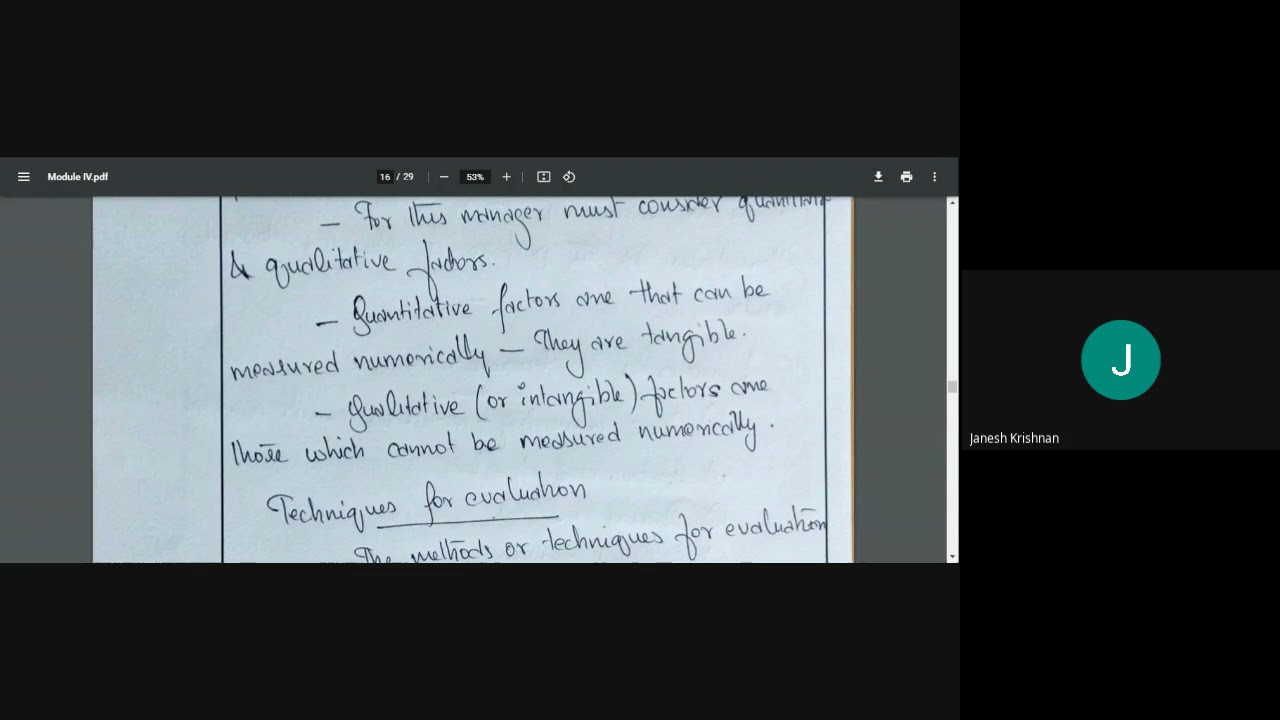 Module IV.pdf
16 / 29
53%
– For this manager must consider
& qualitative factors.
– Quantitative factors are that can be
measured numerically – They are tangible.
– Qualitative (or intangible) factors are
those which cannot be measured numerically.
Techniques for evaluation
The methods or techniques for evaluation
J
Janesh Krishnan